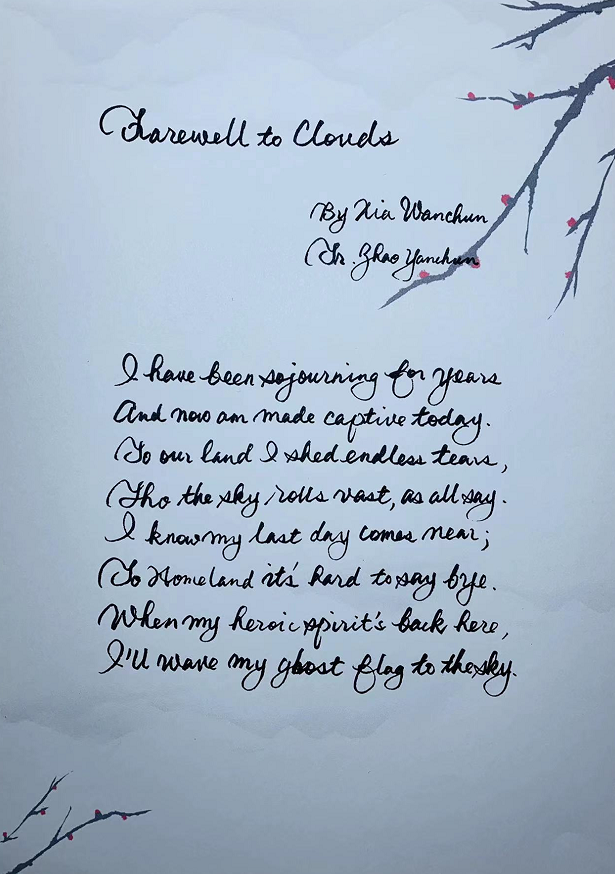 Farewell to Clouds
By Xia Wanchun
Tr. Zhao Yanchun
I have been sojourning for years
And now am made captive today.
To our land I shed endless tears,
Tho the sky rolls vast, as all say.
I know my last day comes near;
To Homeland it's hard to say bye.
When my heroic spirit's back here,
I'll wave my ghost flag to the sky.